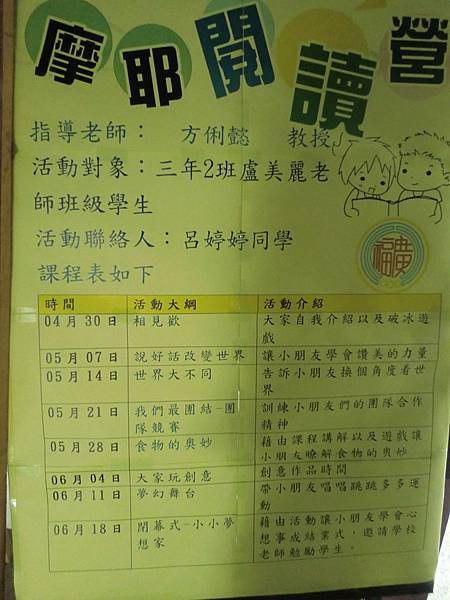 摩耶閱讀營
指導老師： 方俐懿 教授
活動對象：三年2班盧美麗老
師班級學生
活動聯絡人：呂婷婷同學
廣福
課程表如下
時間 活動大綱 活動介紹
04月30日 相見歡 大家自我介紹以及破冰遊
戲
05月07日 說好話改變世界 讓小朋友學會讚美的力量
05月14日 世界大不同 告訴小朋友換個角度看世
界
05月21日 我們最團結-團 訓練小朋友們的團隊合作
隊競賽 精神
05月28日 食物的奧妙 藉由課程講解以及遊戲讓
小朋友瞭解食物的奧妙
06月04日 大家玩創意 創意作品時間
06月11日 夢幻舞台 帶小朋友唱唱跳跳多多運
動
06月18日 閉幕式-小小夢 藉由活動讓小朋友學會心
想家 想事成結業式，邀請學校
老師勉勵學生。